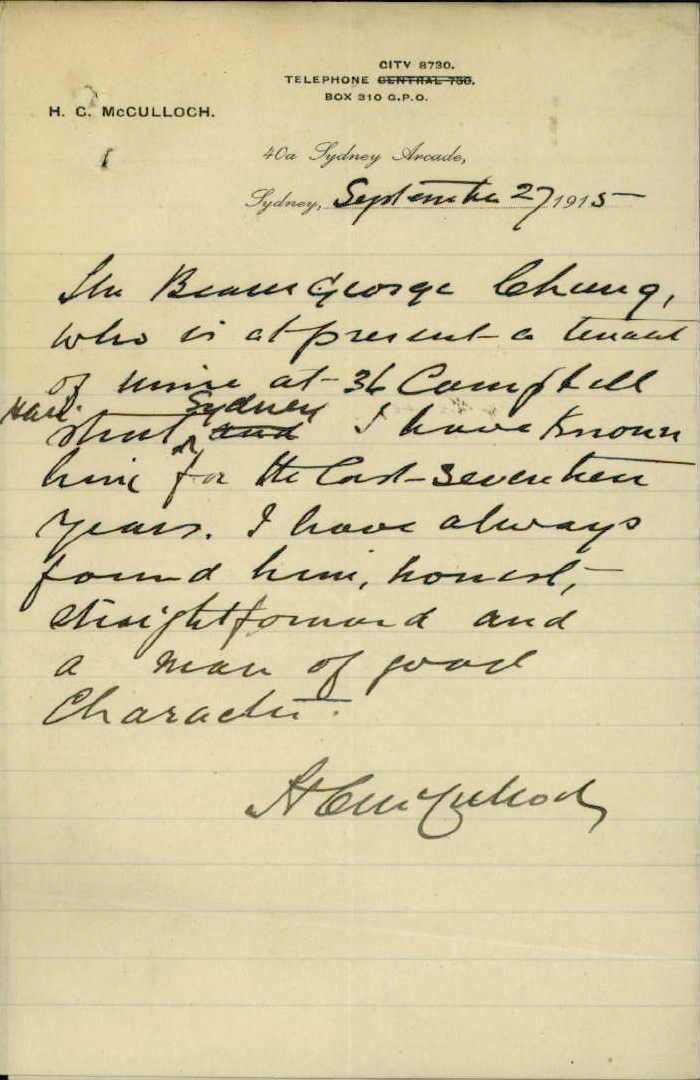 CITY 8730.
TELEPHONE CENTRAL 730.
BOX 310 G.P.O.
H. C. McCULLOCH.
40a Sydney Arcade,
Sydney, September 27 1915
The Bearer George Chung,
who is at present a tenant
of mine at 36 Campbell
Hay. Sydney
Street and I have known
him for the last seventeen
years. I have always
found him, honest,
straightforward and
a man of good
Character.
H C McCulloch